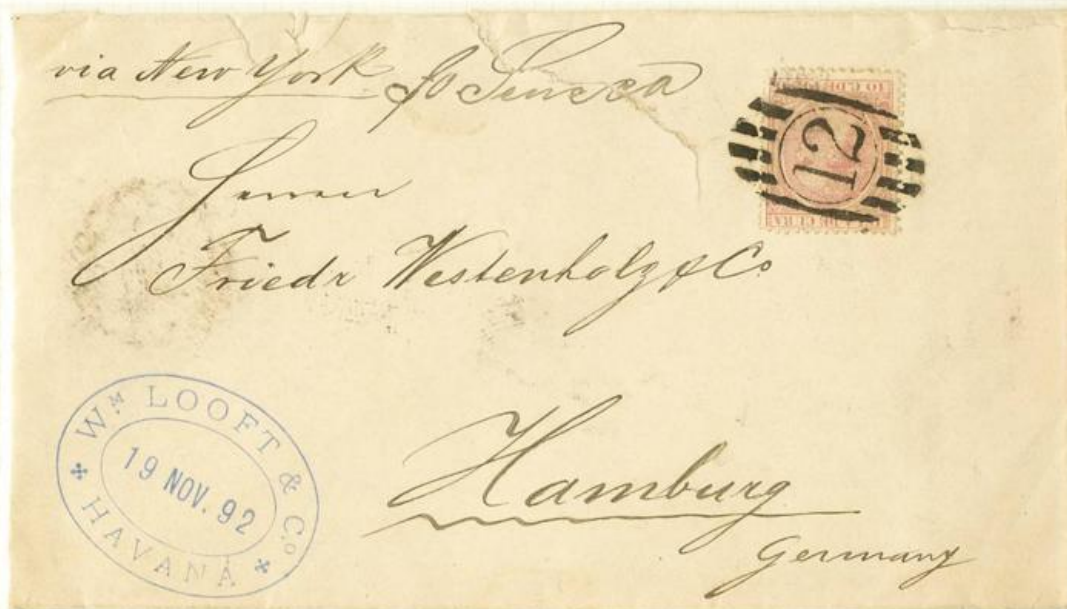 via New York p Seneca
Herren
Friedr Westenholz & Co
Hamburg
Germany
12
Wᴹ LOOFT & Cº
19 NOV. 92
HAVANA